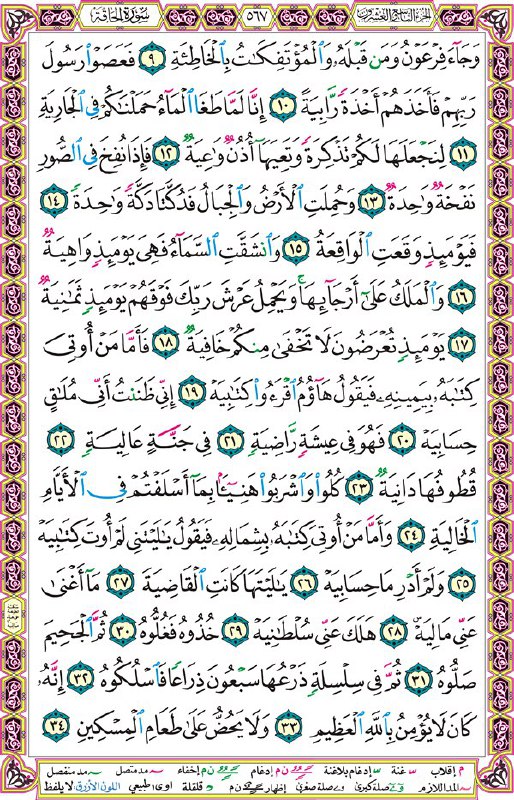 الجزء التاسع والعشرون ٥٦٧ سورة الحاقة
وَجَآءَ فِرْعَوْنُ وَمَن قَبْلَهُۥ وَٱلْمُؤْتَفِكَٰتُ بِٱلْخَاطِئَةِ ٩ فَعَصَوْا۟ رَسُولَ
رَبِّهِمْ فَأَخَذَهُمْ أَخْذَةً رَّابِيَةً ١٠ إِنَّا لَمَّا طَغَا ٱلْمَآءُ حَمَلْنَٰكُمْ فِى ٱلْجَارِيَةِ
١١ لِنَجْعَلَهَا لَكُمْ تَذْكِرَةً وَتَعِيَهَآ أُذُنٌ وَٰعِيَةٌ ١٢ فَإِذَا نُفِخَ فِى ٱلصُّورِ
نَفْخَةٌ وَٰحِدَةٌ ١٣ وَحُمِلَتِ ٱلْأَرْضُ وَٱلْجِبَالُ فَدُكَّتَا دَكَّةً وَٰحِدَةً ١٤
فَيَوْمَئِذٍ وَقَعَتِ ٱلْوَاقِعَةُ ١٥ وَٱنشَقَّتِ ٱلسَّمَآءُ فَهِىَ يَوْمَئِذٍ وَاهِيَةٌ
١٦ وَٱلْمَلَكُ عَلَىٰٓ أَرْجَآئِهَا ۚ وَيَحْمِلُ عَرْشَ رَبِّكَ فَوْقَهُمْ يَوْمَئِذٍ ثَمَٰنِيَةٌ
١٧ يَوْمَئِذٍ تُعْرَضُونَ لَا تَخْفَىٰ مِنكُمْ خَافِيَةٌ ١٨ فَأَمَّا مَنْ أُوتِىَ
كِتَٰبَهُۥ بِيَمِينِهِۦ فَيَقُولُ هَآؤُمُ ٱقْرَءُوا۟ كِتَٰبِيَهْ ١٩ إِنِّى ظَنَنتُ أَنِّى مُلَٰقٍ
حِسَابِيَهْ ٢٠ فَهُوَ فِى عِيشَةٍ رَّاضِيَةٍ ٢١ فِى جَنَّةٍ عَالِيَةٍ ٢٢
قُطُوفُهَا دَانِيَةٌ ٢٣ كُلُوا۟ وَٱشْرَبُوا۟ هَنِيٓـًٔۢا بِمَآ أَسْلَفْتُمْ فِى ٱلْأَيَّامِ
ٱلْخَالِيَةِ ٢٤ وَأَمَّا مَنْ أُوتِىَ كِتَٰبَهُۥ بِشِمَالِهِۦ فَيَقُولُ يَٰلَيْتَنِى لَمْ أُوتَ كِتَٰبِيَهْ
٢٥ وَلَمْ أَدْرِ مَا حِسَابِيَهْ ٢٦ يَٰلَيْتَهَا كَانَتِ ٱلْقَاضِيَةَ ٢٧ مَآ أَغْنَىٰ
عَنِّى مَالِيَهْ ۜ ٢٨ هَلَكَ عَنِّى سُلْطَٰنِيَهْ ٢٩ خُذُوهُ فَغُلُّوهُ ٣٠ ثُمَّ ٱلْجَحِيمَ
صَلُّوهُ ٣١ ثُمَّ فِى سِلْسِلَةٍ ذَرْعُهَا سَبْعُونَ ذِرَاعًا فَٱسْلُكُوهُ ٣٢ إِنَّهُۥ
كَانَ لَا يُؤْمِنُ بِٱللَّهِ ٱلْعَظِيمِ ٣٣ وَلَا يَحُضُّ عَلَىٰ طَعَامِ ٱلْمِسْكِينِ ٣٤
م إقلاب غنة إدغام بلاغنة ن م إدغام ن م إخفاء مد متصل مد منفصل
المد اللازم صلة كبرى صلة صغرى إظهار ن م قلقلة اوى طبيعي اللون الأزرق لا يلفظ